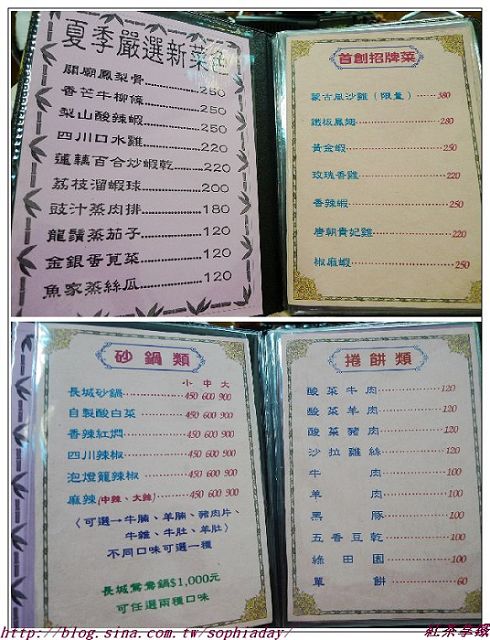 夏季嚴選新菜色
關廟鳳梨骨............250
香芒牛柳條............250
梨山酸辣蝦............250
四川口水雞............220
蓮藕百合炒蝦乾............220
荔枝溜蝦球............200
豉汁蒸肉排............180
龍鬚蒸茄子............120
金銀蛋莧菜............120
魚家蒸絲瓜............120
首創招牌菜
蒙古風沙雞(限量)............380
鐵板鳳翅............280
黃金蝦............250
玫瑰香雞............220
香辣蝦............250
唐朝貴妃雞............220
椒麻蝦............250
砂鍋類
小 中 大
長城砂鍋............450 600 900
自製酸白菜............450 600 900
香辣紅燜............450 600 900
四川辣椒............450 600 900
泡燈籠辣椒............450 600 900
麻辣(中辣、大辣)............450 600 900
〈可選→牛腩、羊腩、豬肉片、
牛雜、牛肚、羊肚〉
不同口味可選一種
長城鴛鴦鍋$1,000元
可任選兩種口味
捲餅類
酸菜牛肉............120
酸菜羊肉............120
酸菜豬肉............120
沙拉雞絲............120
牛肉............100
羊肉............100
黑豚............100
五香豆乾............100
綠田園............100
單餅............60
http://blog.sina.com.tw/sophiaday/
紅茶享鐵